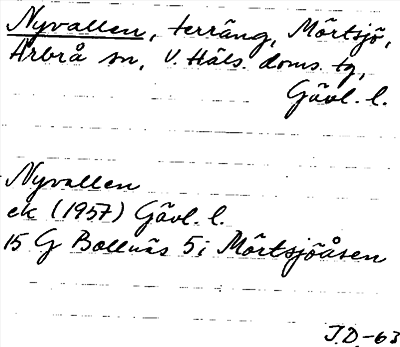 Nyvallen, terräng, Mörtsjö,
Arbrå sn, V. Häls. doms. tg,
Gävl. l.
Nyvallen
ek (1957) Gävl. l.
15 G Bollnäs 5i Mörtsjöåsen
J.D.-63